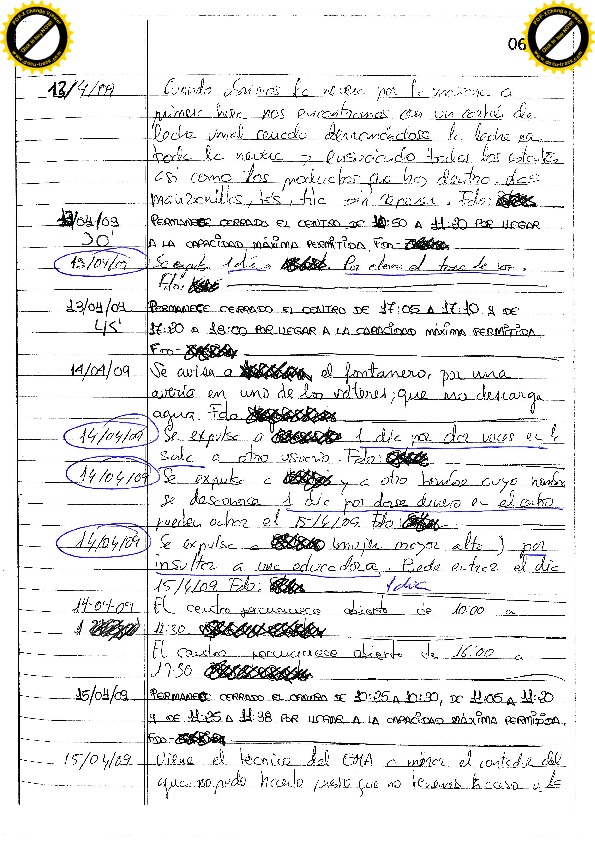 06
13/4/09 Cuando abrimos la nevera por la mañana a
primera hora nos encontramos con un cartón de
leche mal cerrado derramándose la leche en
toda la nevera y ensuciando todos los estantes
así como los productos que hay dentro, dos
manzanillas, tés, Fdo:
13/04/09 PERMANECE CERRADO EL CENTRO DE 10:50 A 11:20 POR LLEGAR
30' A LA CAPACIDAD MÁXIMA PERMITIDA. FDO-
13/04/09 Se expulsa 1 día a Por elevar el tono de voz.
Fdo:
13/04/09 PERMANECE CERRADO EL CENTRO DE 17:05 A 17:10 Y DE
45' 17:20 A 18:00 POR LLEGAR A LA CAPACIDAD MÁXIMA PERMITIDA
FDO-
14/04/09 Se avisa a el fontanero, por una
avería en uno de los váteres, que no descarga
agua. Fdo
14/04/09 Se expulsa a 1 día por dar voces en la
sala a otro usuario. Fdo:
14/04/09 Se expulsa a y a otro hombre cuyo nombre
se desconoce 1 día por darse dinero en el centro
pueden entrar el 15/4/09. Fdo:
14/04/09 Se expulsa a (mujer mayor alta) por
insultar a una educadora. Puede entrar el día
15/4/09 Fdo: 1 día
14-04-09 El centro permanece abierto de 10:00 a
11:30.
El centro permanece abierto de 16:00 a
17:30
15/04/09 PERMANECE CERRADO EL CENTRO DE 10:25 A 10:30, DE 11:05 A 11:20
Y DE 11:25 A 11:38 POR LLEGAR A LA CAPACIDAD MÁXIMA PERMITIDA.
FDO-
15/04/09 Viene el técnico del a mirar el contador del
agua no pudo hacerlo puesto que no tenemos acceso a la